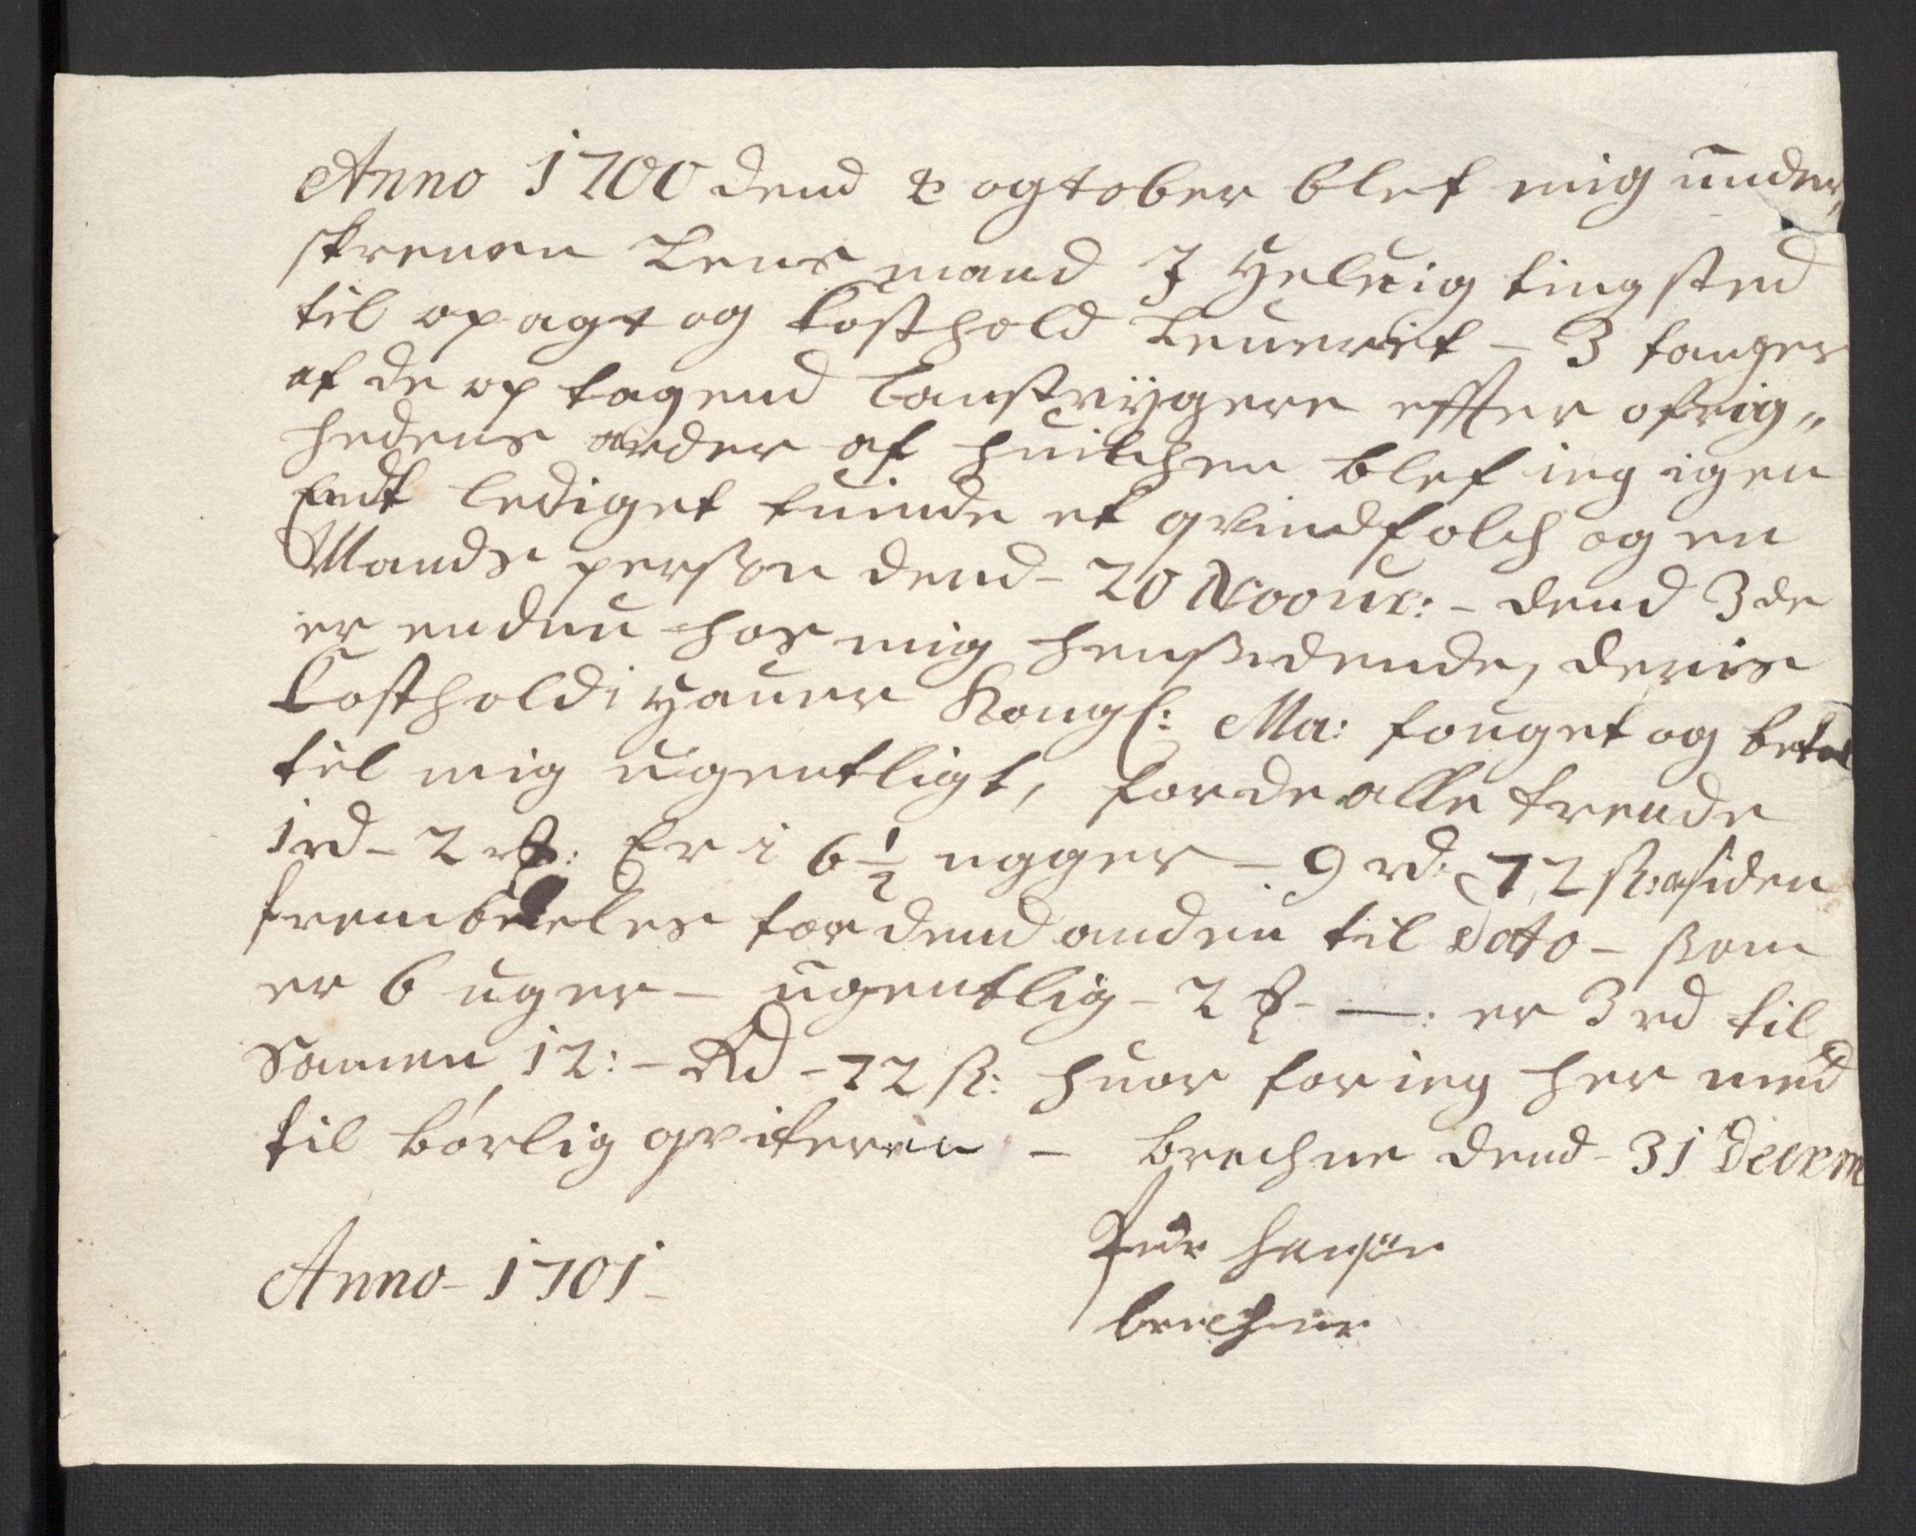 Anno 1700 dend 2 ogtober blef mig under,
skreuen Lens mand J Heluig tingsted
til opagt og kosthold Leuerit - 3 fanger
af de op tagend Landstrygere effter øfrig„
hedens order af huilchen blef ieg igen
Endt lediget tuinde et qvindfolch og en
Mands person dend - 20 Noour: - dend 3de
er endnu hos mig hensidende, deris
kostholdi Hauer Kongl: Ma: fouget og betal
til mig ugentligt, for de alle trende
1 rd - 2 : Er i 6 1/2 ugger - 9 rd: 72 s: siden
frembdeles for dend anden til Dato - som
er 6 uger - ugentlig - 2 - — : er 3 rd til
Samen 12: - Rd - 72 s: huor for ieg her med
til børlig qviterer - brechne dend - 31 Decem
Anno - 1701 -
Hansøn
brechne